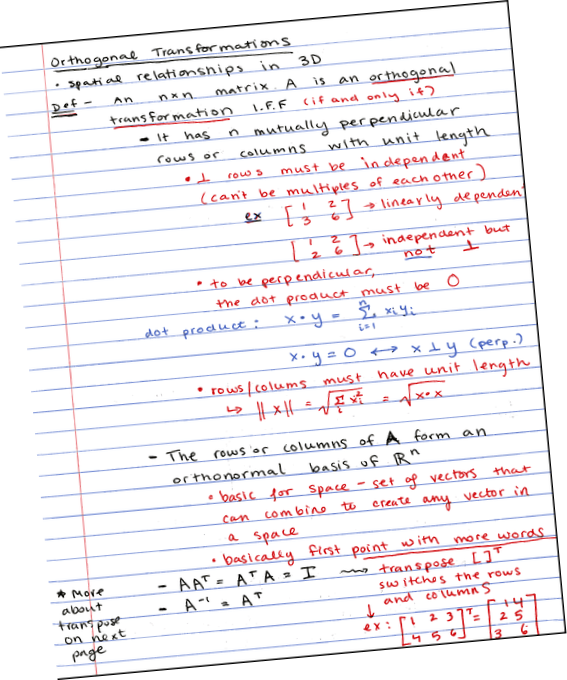 Orthogonal Transformations
• spatial relationships in 3D
Def - An nxn matrix A is an orthogonal
transformation I.F.F (if and only if)
- It has n mutually perpendicular
rows or columns with unit length
• ⊥ rows must be independent
(can't be multiples of each other)
ex [1 2 → linearly dependen
3 6]
[1 2 → independent but
2 6] not ⊥
• to be perpendicular,
the dot product must be 0
dot product: x•y = n∑i=1 xiyi
x•y = 0 ↔ x ⊥ y (perp.)
• rows/colums must have unit length
↳ ||x|| = √∑i xi² = √x•x
- The rows or columns of A form an
orthonormal basis of ℝⁿ
• basic for space - set of vectors that
can combine to create any vector in
a space
• basically first point with more words
- AAᵀ = AᵀA = I ⟿ transpose []ᵀ
- A⁻¹ = Aᵀ switches the rows
↓ and columns
ex: [1 2 3 ]ᵀ = [1 4
4 5 6] 2 5
3 6]
* More
about
transpose
on next
page